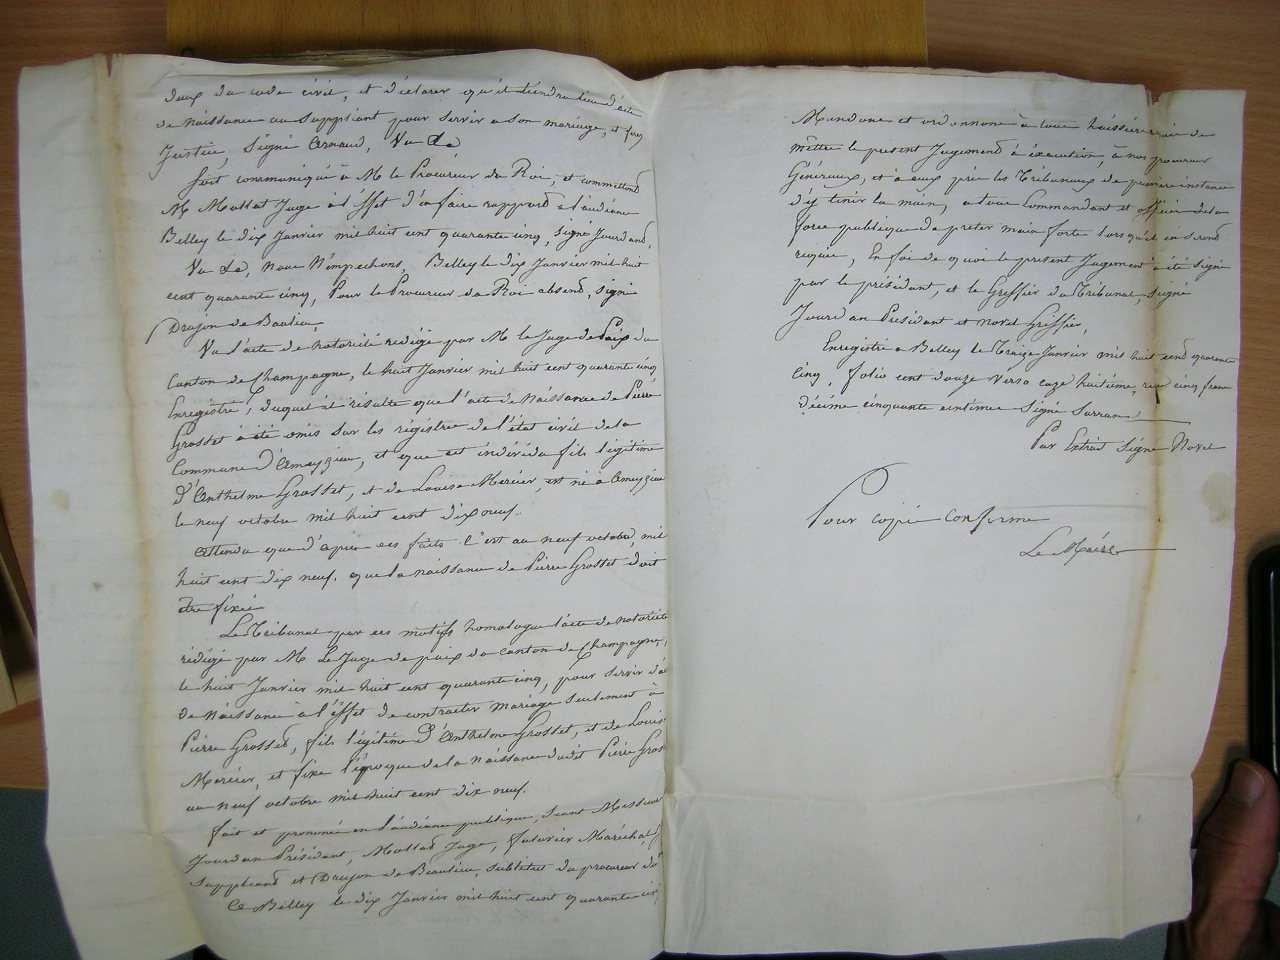 deux du code civil, et déclarer qu'il tiendra lieu d'acte
de Naissance au Suppliant pour servir a son mariage, et ferez
Justice, Signé Arnaud, Vu La
Soit communiqué à M. le Procureur du Roi, et commettons
M. Mollat Juge à l'effet d'en faire rapport a l'audience
Belley le dix Janvier mil huit cent quarante cinq, Signé Jourdan,
Vu La, Nous N'empechons, Belley le dix Janvier mil huit
cent quarante cinq, Pour le Procureur du Roi absend, Signé
Drujon de Baulieu
Vu l'acte de Notoriété rédigé par M. le Juge de Paix du
Canton de Champagne, le huit Janvier mil huit cent quarante cinq
Enregistré, duquel il résulte que l'acte de Naissance de Pierre
Grosset à été omis sur les régistre de l'état civil de la
Commune d'Ameyzieu, et que cet individu fils légitime
d'Anthelme Grosset, et de Louise Mercier, est né à Ameyzieu
le neuf octobre mil huit cent dix neuf.
Attendu que d'après ces faits c'est au neuf octobre mil
huit cent dix neuf, que la naissance de Pierre Grosset doit
être fixée
Le Tribunal par ces motifs homologue l'acte de Notoriété
rédigé par M. Le Juge de paix du canton de Champagne,
le huit Janvier mil huit cent quarante cinq, pour servir d'a
de Naissance à l'effet de contracter mariage seulement à
Pierre Grosset, fils légitime d'Anthelme Grosset, et de Louis
Mercier, et fixe l'époque de la Naissance dudit Pierre Gros
au neuf octobre mil huit cent dix neuf.
fait et prononcé en l'audience publique, Seant Messieur
Jourdan Président, Mollat Juge, Maréchal J
Suppleand et Drujon de Beaulieu, Subtitut du procureur du
A Belley le dix Janvier mil huit cent quarante cin
Mandons et ordonnons à tous huissiers de
mettre le present Jugement à éxécution, à nos procureur
Généraux, et à ceux près les Tribunaux de premiere instance
d'y tenir la main, a tous Commandant et officier de la
force publique de preter main forte lorsqu'il en serond
requis, En foi de quoi le present Jugement à été Signé
par le président, et le Greffier du Tribunal, Signé
Jourdan President et Novel Griffier,
Enregistré a Belley le Treize Janvier mil huit cend quarante
cinq, folio cent douze verso caze huitième, reçu cinq franc
décime cinquante centimes Signé Sarrand
Par Extrait Signé Novel
Pour copie conforme
Le Maire